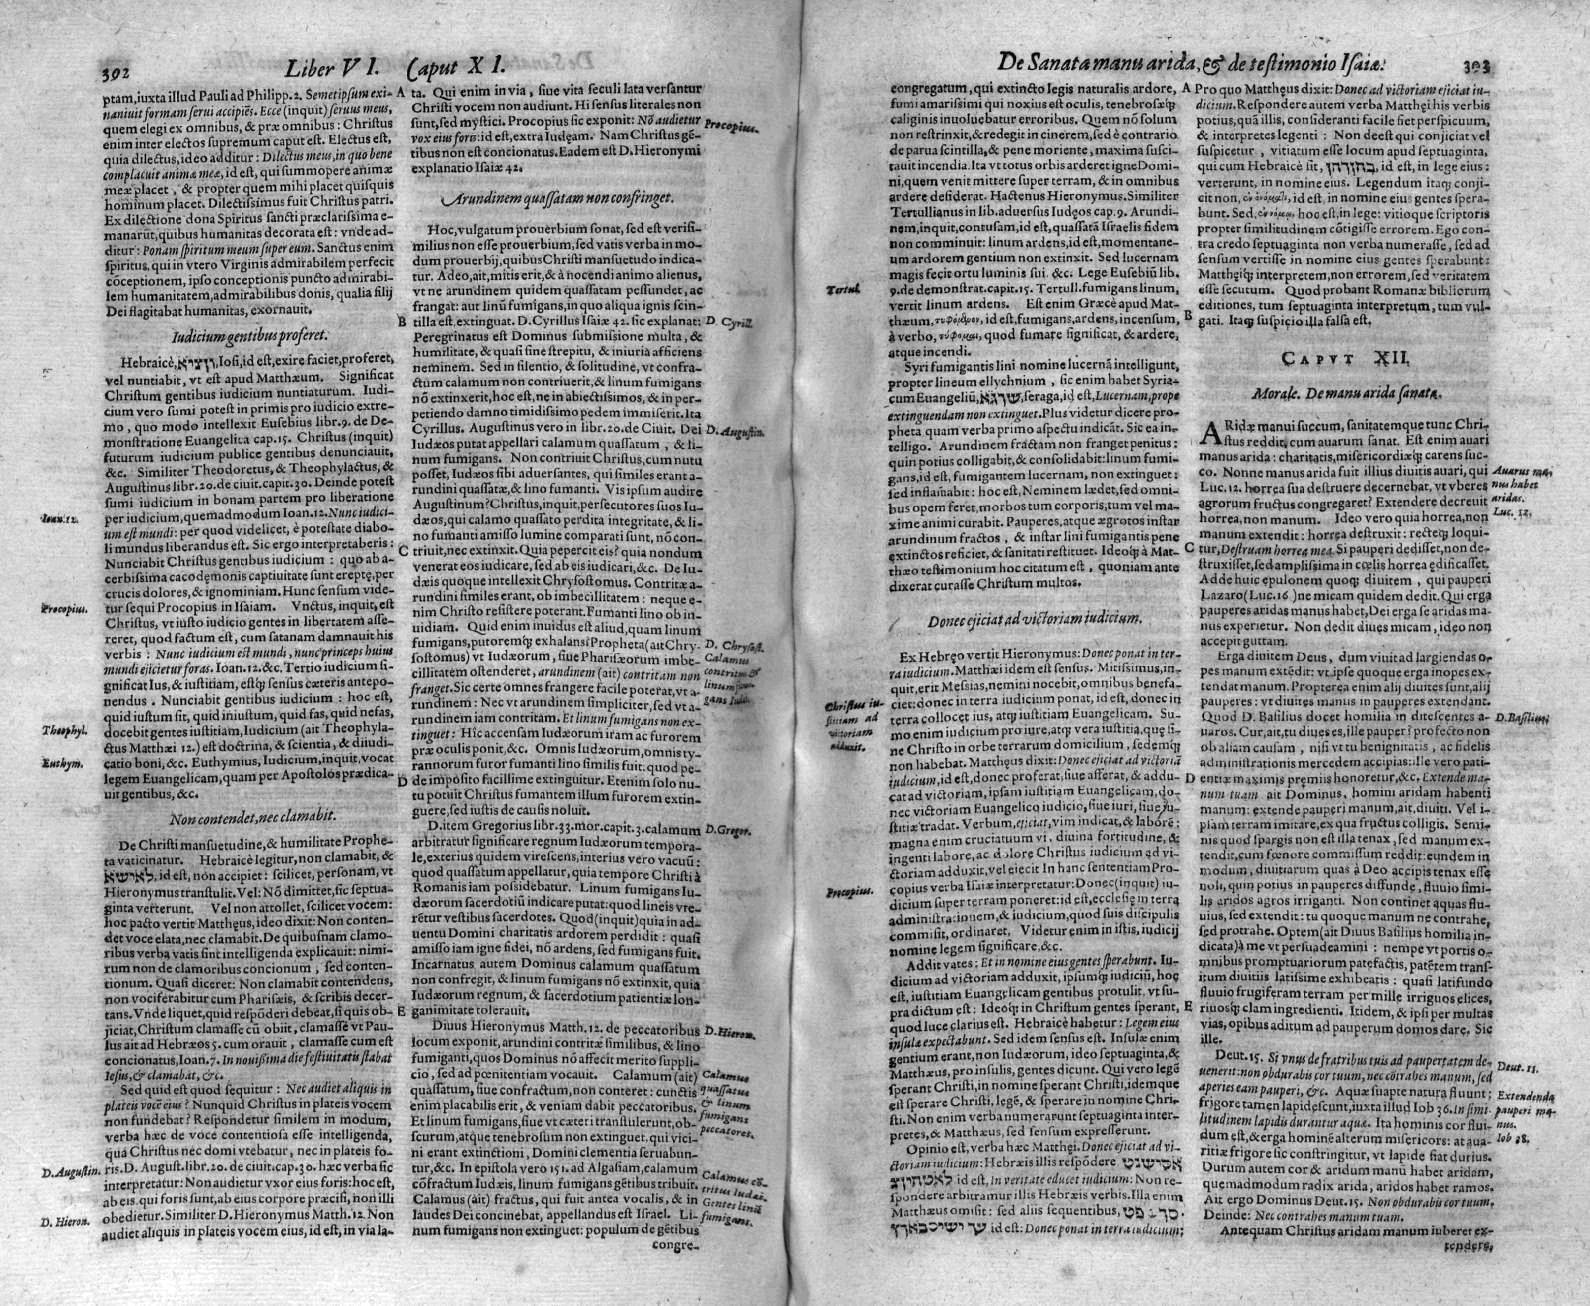 392
Liber VI. Caput XI.
ptam, iuxta illud Pauli ad Philipp. 2. Semetipsum exi-
naniuit formam serui accipiẽs. Ecce (inquit) seruus meus,
quem elegi ex omnibus, & præ omnibus: Christus
enim inter electos supremum caput est. Electus est,
quia dilectus, ideo additur: Dilectus meus, in quo bene
complacuit animæ meæ, id est, qui summopere animæ
meæ placet, & propter quem mihi placet quisquis
hominum placet. Dilectissimus fuit Christus patri.
Ex dilectione dona Spiritus sancti præclarissima e-
manarũt, quibus humanitas decorata est: vnde ad-
ditur: Ponam spiritum meum super eum. Sanctus enim
spiritus, qui in vtero Virginis admirabilem perfecit
cõceptionem, ipso conceptionis puncto admirabi-
lem humanitatem, admirabilibus donis, qualia filij
Dei flagitabat humanitas, exornauit.
Iudicium gentibus proferet.
Hebraicè, יוציא, Iosi, id est, exire faciet, proferet,
vel nuntiabit, vt est apud Matthæum. Significat
Christum gentibus iudicium nuntiaturum. Iudi-
cium vero sumi potest in primis pro iudicio extre-
mo, quo modo intellexit Eusebius libr. 9. de De-
monstratione Euangelica cap. 15. Christus (inquit)
futurum iudicium publice gentibus denunciauit,
&c. Similiter Theodoretus, & Theophylactus, &
Augustinus libr. 20. de ciuit. capit. 30. Deinde potest
sumi iudicium in bonam partem pro liberatione
per iudicium, quemadmodum Ioan. 12. Nunc iudici-
um est mundi: per quod videlicet, è potestate diabo-
li mundus liberandus est. Sic ergo interpretaberis:
Nunciabit Christus gentibus iudicium: quo ab a-
cerbissima cacodęmonis captiuitate sunt ereptę, per
crucis dolores, & ignominiam. Hunc sensum vide-
tur sequi Procopius in Isaiam. Vnctus, inquit, est
Christus, vt iusto iudicio gentes in libertatem asse-
reret, quod factum est, cum satanam damnauit his
verbis: Nunc iudicium est mundi, nunc princeps huius
mundi ejicietur foras. Ioan. 12. &c. Tertio iudicium si-
gnificat Ius, & iustitiam, estq́; sensus cæteris antepo-
nendus. Nunciabit gentibus iudicium: hoc est,
quid iustum sit, quid iniustum, quid fas, quid nefas,
docebit gentes iustitiam, Iudicium (ait Theophyla-
ctus Matthæi 12.) est doctrina, & scientia, & diiudi-
catio boni, &c. Euthymius, Iudicium, inquit, vocat
legem Euangelicam, quam per Apostolos prædica-
uit gentibus, &c.
Non contendet, nec clamabit.
De Christi mansuetudine, & humilitate Prophe-
ta vaticinatur. Hebraicè legitur, non clamabit, &
לא ישא, id est, non accipiet: scilicet, personam, vt
Hieronymus transtulit. Vel: Nõ dimittet, sic septua-
ginta verterunt. Vel non attollet, scilicet vocem:
hoc pacto vertit Matthęus, ideo dixit: Non conten-
det voce elata, nec clamabit. De quibusnam clamo-
ribus verba vatis sint intelligenda explicauit: nimi-
rum non de clamoribus concionum, sed conten-
tionum. Quasi diceret: Non clamabit contendens,
non vociferabitur cum Pharisæis, & scribis decer-
tans. Vnde liquet, quid respõderi debeat, si quis ob-
jiciat, Christum clamasse cũ obiit, clamasse vt Pau-
lus ait ad Hebræos 5. cum orauit, clamasse cum est
concionatus, Ioan. 7. In nouissima die festiuitatis stabat
Iesus, & clamabat, &c.
Sed quid est quod sequitur: Nec audiet aliquis in
plateis vocẽ eius? Nunquid Christus in plateis vocem
non fundebat? Respondetur similem in modum,
verba hæc de voce contentiosa esse intelligenda,
quã Christus nec domi vtebatur, nec in plateis fo-
ris. D. August. libr. 20. de ciuit. cap. 30. hæc verba sic
interpretatur: Non audietur vxor eius foris: hoc est,
ab eis, qui foris sunt, ab eius corpore præcisi, non illi
obedietur. Similiter D. Hieronymus Matth. 12. Non
audiet aliquis in plateis vocem eius, id est, in via la-
Ioan. 12.
Procopius.
Theophyl.
Euthym.
D. Augustin.
D. Hieron.
A
B
C
D
E
ta. Qui enim in via, siue vita seculi lata versantur
Christi vocem non audiunt. Hi sensus literales non
sunt, sed mystici. Procopius sic exponit: Nõ audietur
vox eius foris: id est, extra Iudęam. Nam Christus gẽ-
tibus non est concionatus. Eadem est D. Hieronymi
explanatio Isaiæ 42.
Arundinem quassatam non confringet.
Hoc, vulgatum prouerbium sonat, sed est verisi-
milius non esse prouerbium, sed vatis verba in mo-
dum prouerbij, quibus Christi mansuetudo indica-
tur. Adeo, ait, mitis erit, & à nocendi animo alienus,
vt ne arundinem quidem quassatam pessundet, ac
frangat: aut linũ fumigans, in quo aliqua ignis scin-
tilla est, extinguat. D. Cyrillus Isaiæ 42. sic explanat:
Peregrinatus est Dominus submissione multa, &
humilitate, & quasi sine strepitu, & iniuria afficiens
neminem. Sed in silentio, & solitudine, vt confra-
ctum calamum non contriuerit, & linum fumigans
nõ extinxerit, hoc est, ne in abiectissimos, & in per-
petiendo damno timidissimo pedem immiserit. Ita
Cyrillus. Augustinus vero in libr. 20. de Ciuit. Dei
Iudæos putat appellari calamum quassatum, & li-
num fumigans. Non contriuit Christus, cum nutu
posset, Iudæos sibi aduersantes, qui similes erant a-
rundini quassatæ, & lino fumanti. Vis ipsum audire
Augustinum? Christus, inquit, persecutores suos Iu-
dæos, qui calamo quassato perdita integritate, & li-
no fumanti amisso lumine comparati sunt, nõ con-
triuit, nec extinxit. Quia pepercit eis? quia nondum
venerat eos iudicare, sed ab eis iudicari, &c. De Iu-
dæis quoque intellexit Chrysostomus. Contritæ a-
rundini similes erant, ob imbecillitatem: neque e-
nim Christo resistere poterant. Fumanti lino ob in-
uidiam. Quid enim inuidus est aliud, quam linum
fumigans, putoremq́; exhalans? Propheta (ait Chry-
sostomus) vt Iudæorum, siue Pharisæorum imbe-
cillitatem ostenderet, arundinem (ait) contritam non
franget. Sic certe omnes frangere facile poterat, vt a-
rundinem: Nec vt arundinem simpliciter, sed vt a-
rundinem iam contritam. Et linum fumigans non ex-
tinguet: Hic accensam Iudæorum iram ac furorem
præ oculis ponit, &c. Omnis Iudæorum, omnis ty-
rannorum furor fumanti lino similis fuit: quod pe-
de imposito facillime extinguitur. Etenim solo nu-
tu potuit Christus fumantem illum furorem extin-
guere, sed iustis de causis noluit.
D. item Gregorius libr. 33. mor. capit. 3. calamum
arbitratur significare regnum Iudæorum tempora-
le, exterius quidem virescens, interius vero vacuũ:
quod quassatum appellatur, quia tempore Christi à
Romanis iam possidebatur. Linum fumigans Iu-
dæorum sacerdotiũ indicare putat: quod lineis vte-
rẽtur vestibus sacerdotes. Quod (inquit) quia in ad-
uentu Domini charitatis ardorem perdidit: quasi
amisso iam igne fidei, nõ ardens, sed fumigans fuit.
Incarnatus autem Dominus calamum quassatum
non confregit, & linum fumigans nõ extinxit, quia
Iudæorum regnum, & sacerdotium patientiæ lon-
ganimitate tolerauit.
Diuus Hieronymus Matth. 12. de peccatoribus
locum exponit, arundini contritæ similibus, & lino
fumiganti, quos Dominus nõ affecit merito suppli-
cio, sed ad pœnitentiam vocauit. Calamum (ait)
quassatum, siue confractum, non conteret: cunctis
enim placabilis erit, & veniam dabit peccatoribus.
Et linum fumigans, siue vt cæteri transtulerunt, ob-
scurum, atque tenebrosum non extinguet. qui vici-
ni erant extinctioni, Domini clementia seruabun-
tur, &c. In epistola vero 151. ad Algasiam, calamum
cõfractum Iudæis, linum fumigans gẽtibus tribuit.
Calamus (ait) fractus, qui fuit antea vocalis, & in
laudes Dei concinebat, appellandus est Israel. Li-
num fumigans non extinguet: populum de gẽtibus
congre-
Procopius.
D. Cyrill.
D. Augustin.
D. Chrysost.
Calamus
contritus &
linum fumi-
gans Iudæi.
D. Gregor.
D. Hieron.
Calamus
quassatus
& linum
fumigans
peccatores.
Calamus cõ-
tritus Iudæi.
Gentes linũ
fumigans.
De Sanata manu arida, & de testimonio Isaiæ.
393
congregatum, qui extincto legis naturalis ardore,
fumi amarissimi qui noxius est oculis, tenebrosæq́;
caliginis inuoluebatur erroribus. Quem nõ solum
non restrinxit, & redegit in cinerem, sed è contrario
de parua scintilla, & pene moriente, maxima susci-
tauit incendia. Ita vt totus orbis arderet igne Domi-
ni, quem venit mittere super terram, & in omnibus
ardere desiderat. Hactenus Hieronymus. Similiter
Tertullianus in lib. aduersus Iudęos cap. 9. Arundi-
nem, inquit, contusam, id est, quassatã Israelis fidem
non comminuit: linum ardens, id est, momentane-
um ardorem gentium non extinxit. Sed lucernam
magis fecit ortu luminis sui. &c. Lege Eusebiũ lib.
9. de demonstrat. capit. 15. Tertull. fumigans linum,
vertit linum ardens. Est enim Græcè apud Mat-
thæum, τυφόμενον, id est, fumigans, ardens, incensum,
à verbo, τύφομαι, quod fumare significat, & ardere,
atque incendi.
Syri fumigantis lini nomine lucernã intelligunt,
propter lineum ellychnium, sic enim habet Syria-
cum Euangeliũ, שרגא, seraga, id est, Lucernam, prope
extinguendam non extinguet. Plus videtur dicere pro-
pheta, quam verba primo aspectu indicãt. Sic ea in-
telligo. Arundinem fractãm non franget penitus:
quin potius colligabit, & consolidabit: linum fumi-
gans, id est, fumigantem lucernam, non extinguet:
sed inflamabit: hoc est, Neminem lædet, sed omni-
bus opem feret, morbos tum corporis, tum vel ma-
xime animi curabit. Pauperes, atque ægrotos instar
arundinum fractos, & instar lini fumigantis pene
extinctos reficiet, & sanitati restituet. Ideoq́; à Mat-
thæo testimonium hoc citatum est, quoniam ante
dixerat curasse Christum multos.
Donec ejiciat ad victoriam iudicium.
Ex Hebręo vertit Hieronymus: Donec ponat in ter-
ra iudicium. Matthæi idem est sensus. Mitissimus, in-
quit, erit Messias, nemini nocebit, omnibus benefa-
ciet: donec in terra iudicium ponat, id est, donec in
terra collocet ius, atq́; iustitiam Euangelicam. Su-
mo enim iudicium pro iure, atq́; vera iustitia, quę si-
ne Christo in orbe terrarum domicilium, sedemq́;
non habebat. Matthęus dixit: Donec ejiciat ad victoriã
iudicium, id est, donec proferat, siue afferat, & addu-
cat ad victoriam, ipsam iustitiam Euangelicam, do-
nec victoriam Euangelico iudicio, siue iuri, siue iu-
stitiæ tradat. Verbum, ejiciat, vim indicat, & laborẽ:
magna enim cruciatuum vi, diuina fortitudine, &
ingenti labore, ac dolore Christus iudicium ad vi-
ctoriam adduxit, vel eiecit In hanc sententiam Pro-
copius verba Isaiæ interpretatur: Donec (inquit) iu-
dicium super terram poneret: id est, ecclesię in terra
administrationem, & iudicium, quod suis discipulis
commisit, ordinaret. Videtur enim in istis, iudicij
nomine legem significare, &c.
Addit vates: Et in nomine eius gentes sperabunt. Iu-
dicium ad victoriam adduxit, ipsumq́; iudiciũ, hoc
est, iustitiam Euangelicam gentibus protulit. vt su-
pra dictum est: Ideoq́; in Christum gentes sperant,
quod luce clarius est. Hebraicè habetur: Legem eius
insulæ expectabunt. Sed idem sensus est. Insulæ enim
gentium erant, non Iudæorum, ideo septuaginta, &
Matthæus, pro insulis, gentes dicunt. Qui vero legẽ
sperant Christi, in nomine sperant Christi, idemque
est sperare Christi, legẽ, & sperare in nomine Chri-
sti. Non enim verba numerarunt septuaginta inter-
pretes, & Matthæus, sed sensum expresserunt.
Opinio est, verba hæc Matthęi. Donec ejiciat ad vi-
ctoriam iudicium: Hebræis illis respõdere
id est, In veritate educet iudicium: Non re-
spondere arbitramur illis Hebræis verbis. Illa enim
Matthæus omisit: sed aliis sequentibus,
id est: Donec ponat in terra iudicium;
Tertul.
Christus iu-
stitiam ad
victoriam
adduxit.
Procopius.
A
B
C
D
E
Pro quo Matthęus dixit: Donec ad victoriam ejiciat iu-
dicium. Respondere autem verba Matthęi his verbis
potius, quã illis, consideranti facile fiet perspicuum,
& interpretes legenti: Non deest qui conjiciat vel
suspicetur, vitiatum esse locum apud septuaginta,
qui cum Hebraicè sit, id est, in lege eius:
verterunt, in nomine eius. Legendum itaq́; conji-
cit non, id est, in nomine eius gentes spera-
bunt. Sed, hoc est, in lege: vitioque scriptoris
propter similitudinem cõtigisse errorem. Ego con-
tra credo septuaginta non verba numerasse, sed ad
sensum vertisse in nomine eius gentes sperabunt:
Mattheũq́; interpretem, non errorem, sed veritatem
esse secutum. Quod probant Romanæ bibliorum
editiones, tum septuaginta interpretum, tum vul-
gati. Itaq́; suspicio illa falsa est.
CAPVT XII.
Morale. De manu arida sanata.
ARidæ manui succum, sanitatemque tunc Chri-
stus reddit, cum auarum sanat. Est enim auari
manus arida: charitatis, misericordiæq́; carens suc-
co. Nonne manus arida fuit illius diuitis auari, qui
Luc. 12. horrea sua destruere decernebat, vt vberes
agrorum fructus congregaret? Extendere decreuit
horrea, non manum. Ideo vero quia horrea, non
manum extendit: horrea destruxit: recteq́; loqui-
tur, Destruam horrea mea. Si pauperi dedisset, non de-
struxisset, sed amplissima in cœlis horrea ędificasset.
Adde huic epulonem quoq́; diuitem, qui pauperi
Lazaro (Luc. 16) ne micam quidem dedit. Qui erga
pauperes aridas manus habet, Dei erga se aridas ma-
nus experietur. Non dedit diues micam, ideo non
accepit guttam.
Erga diuitem Deus, dum viuit ad largiendas o-
pes manum extẽdit: vt ipse quoque erga inopes ex-
tendat manum. Propterea enim alij diuites sunt, alij
pauperes: vt diuites manus in pauperes extendant.
Quod D. Basilius docet homilia in ditescentes a-
uaros. Cur, ait, tu diues es, ille pauper? profecto non
ob aliam causam, nisi vt tu benignitatis, ac fidelis
administrationis mercedem accipias: ille vero pati-
entiæ maximis premiis honoretur, &c. Extende ma-
num tuam ait Dominus, homini aridam habenti
manum: extende pauperi manum, ait, diuiti. Vel i-
psam terram imitare, ex qua fructus colligis. Semi-
nis quod spargis non est illa tenax, sed manum ex-
tendit, cum fœnore commissum reddit: eundem in
modum, diuitiarum quas à Deo accipis tenax esse
noli, quin potius in pauperes diffunde, fluuio simi-
lis aridos agros irriganti. Non continet aquas flu-
uius, sed extendit: tu quoque manum ne contrahe,
sed protrahe. Optem (ait Diuus Basilius homilia in-
dicata) à me vt persuadeamini: nempe vt portis o-
mnibus promptuariorum patefactis, patẽtem trans-
itum diuitiis latissime exhibeatis: quasi latifundo
fluuio frugiferam terram per mille irriguos elices,
riuosq́; clam ingredienti. Itidem, & ipsi per multas
vias, opibus aditum ad pauperum domos darę. Sic
ille.
Deut. 15. Si vnus de fratribus tuis ad paupertatem de-
uenerit: non obdurabis cor tuum, nec cõtrahes manum, sed
aperies eam pauperi, &c. Aquæ suapte natura fluunt;
frigore tamen lapidescunt, iuxta illud Iob 36. In simi-
litudinem lapidis durantur aquæ. Ita hominis cor flui-
dum est, & erga hominẽ alterum misericors: at aua-
ritiæ frigore sic constringitur, vt lapide fiat durius.
Durum autem cor & aridam manũ habet aridam,
quemadmodum radix arida, aridos habet ramos.
Ait ergo Dominus Deut. 15. Non obdurabis cor tuum,
Deinde: Nec contrahes manum tuam.
Antequam Christus aridam manum iuberet ex-
tendere,
Auarus ma-
nus habet
aridas.
Luc. 12.
D. Basilius
Deut. 15.
Extendenda
pauperi ma-
nus.
Iob 38.